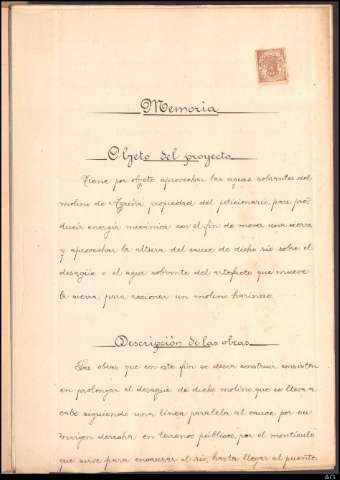 Memoria
Objeto del proyecto
Tiene por objeto aprovechar las aguas sobrantes del
molino de propiedad del peticionario, para pro-
ducir energía mecánica con el fin de mover una sierra
y aprovechar la altura del cauce de dicho río sobre el
desagüe o el agua sobrante del artefacto que mueve
la sierra, para accionar un molino harinero.
Descripción de las obras
Las obras que con este fin se desea construir consisten
en prolongar el desagüe de dicho molino que se lleva a
cabo siguiendo una línea paralela al cauce, por su
margen derecha en terrenos públicos, por el montículo
que sirve para encauzar el río, hasta llegar al puente